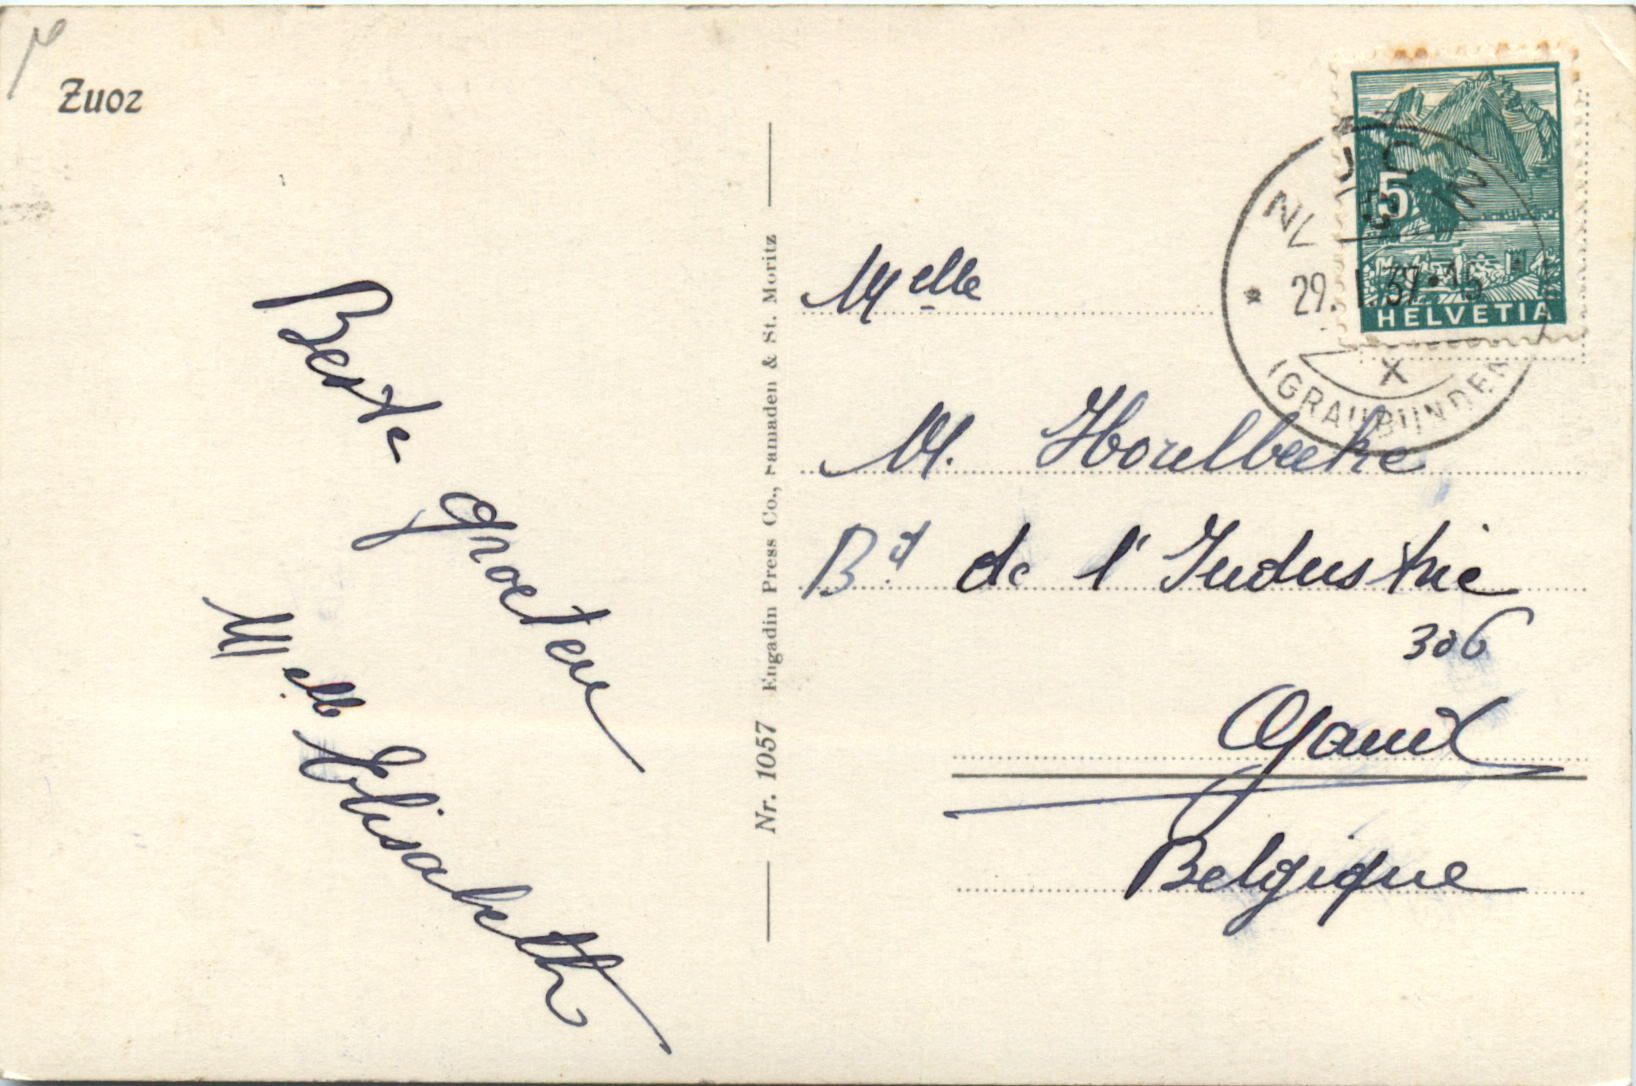 Zuoz
Beste groeten
Melle Elisabeth
Nr. 1057 Engadin Press Co., Samaden & St. Moritz
5
HELVETIA
29. I. 37-15
X
(GRAUBÜNDEN)
Melle
M. Horelbeeke
Bd de l'Industrie
306
Gand
Belgique